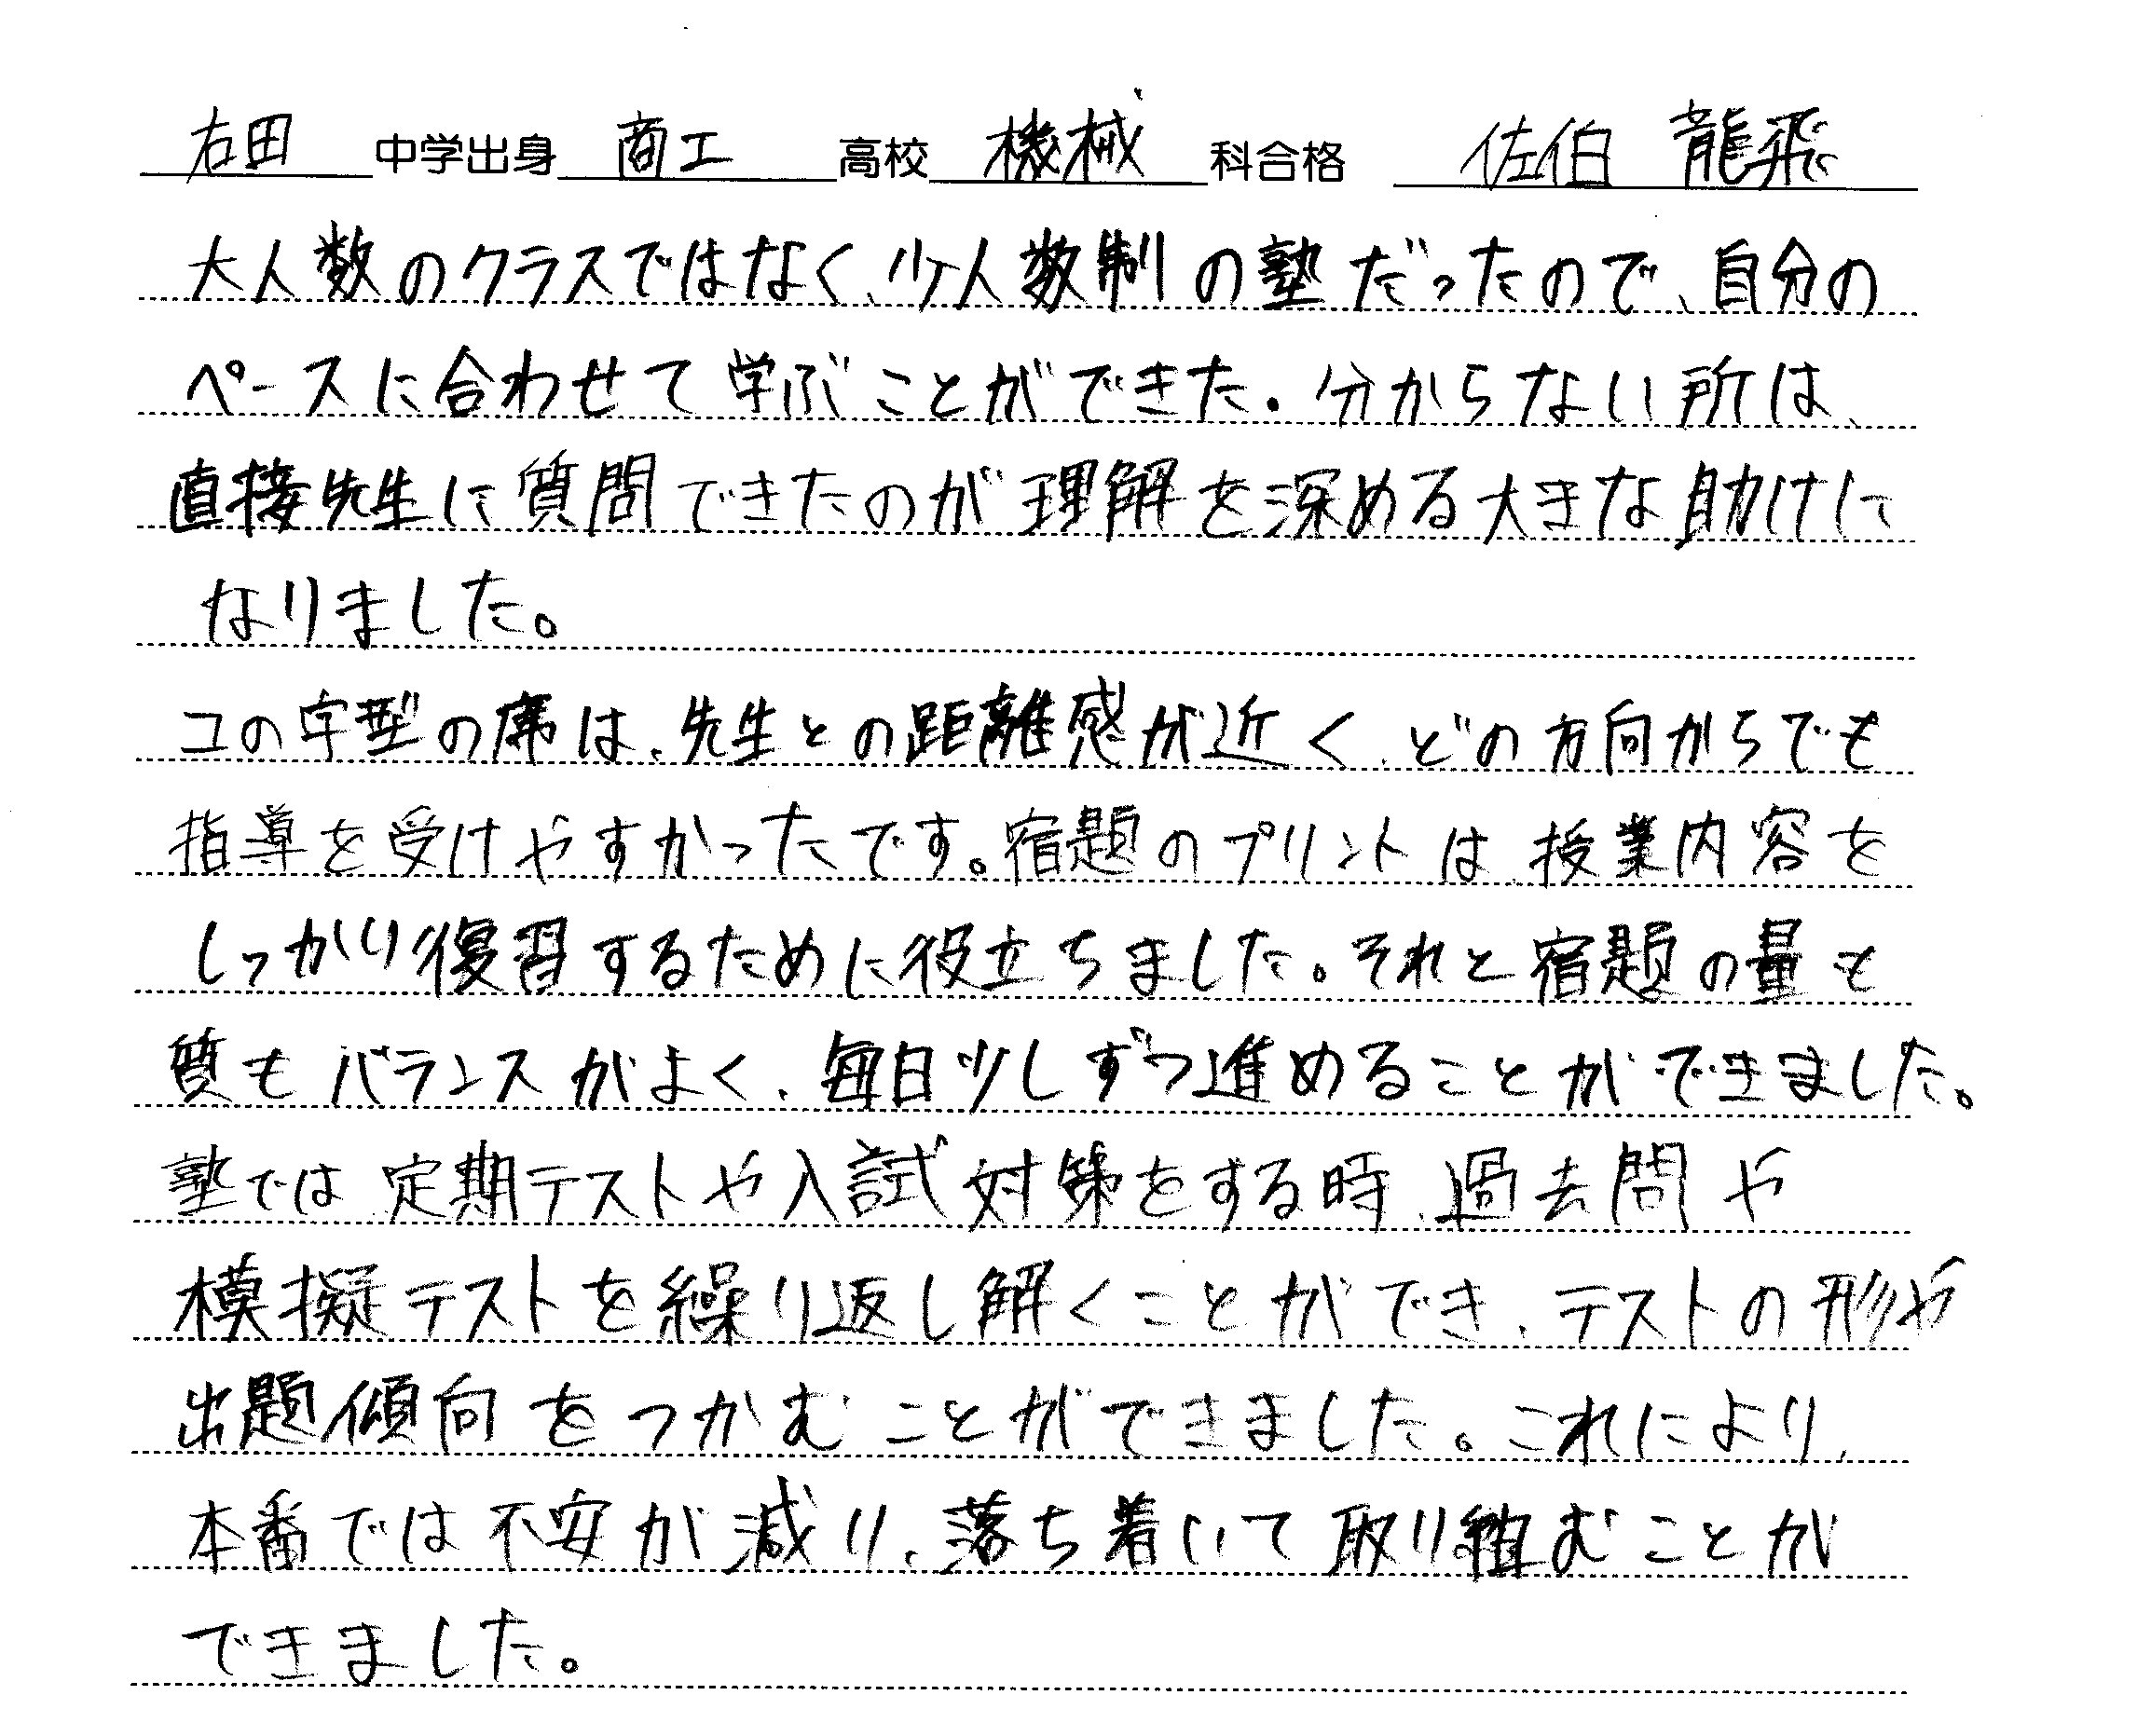 右田中学出身 商工 高校 機械 科合格 佐伯 龍飛
大人数のクラスではなく、少人数制の塾だったので、自分の
ペースに合わせて学ぶことができた。分からない所は、
直接先生に質問できたのが理解を深める大きな助けに
なりました。
コの字型の席は、先生との距離感が近く、どの方向からでも
指導を受けやすかったです。宿題のプリントは、授業内容を
しっかり復習するために役立ちました。それと宿題の量も
質もバランスがよく、毎日少しずつ進めることができました。
塾では、定期テストや入試対策をする時、過去問や
模擬テストを繰り返し解くことができ、テストの形や
出題傾向をつかむことができました。これにより、
本番では不安が減り、落ち着いて取り組むことが
できました。